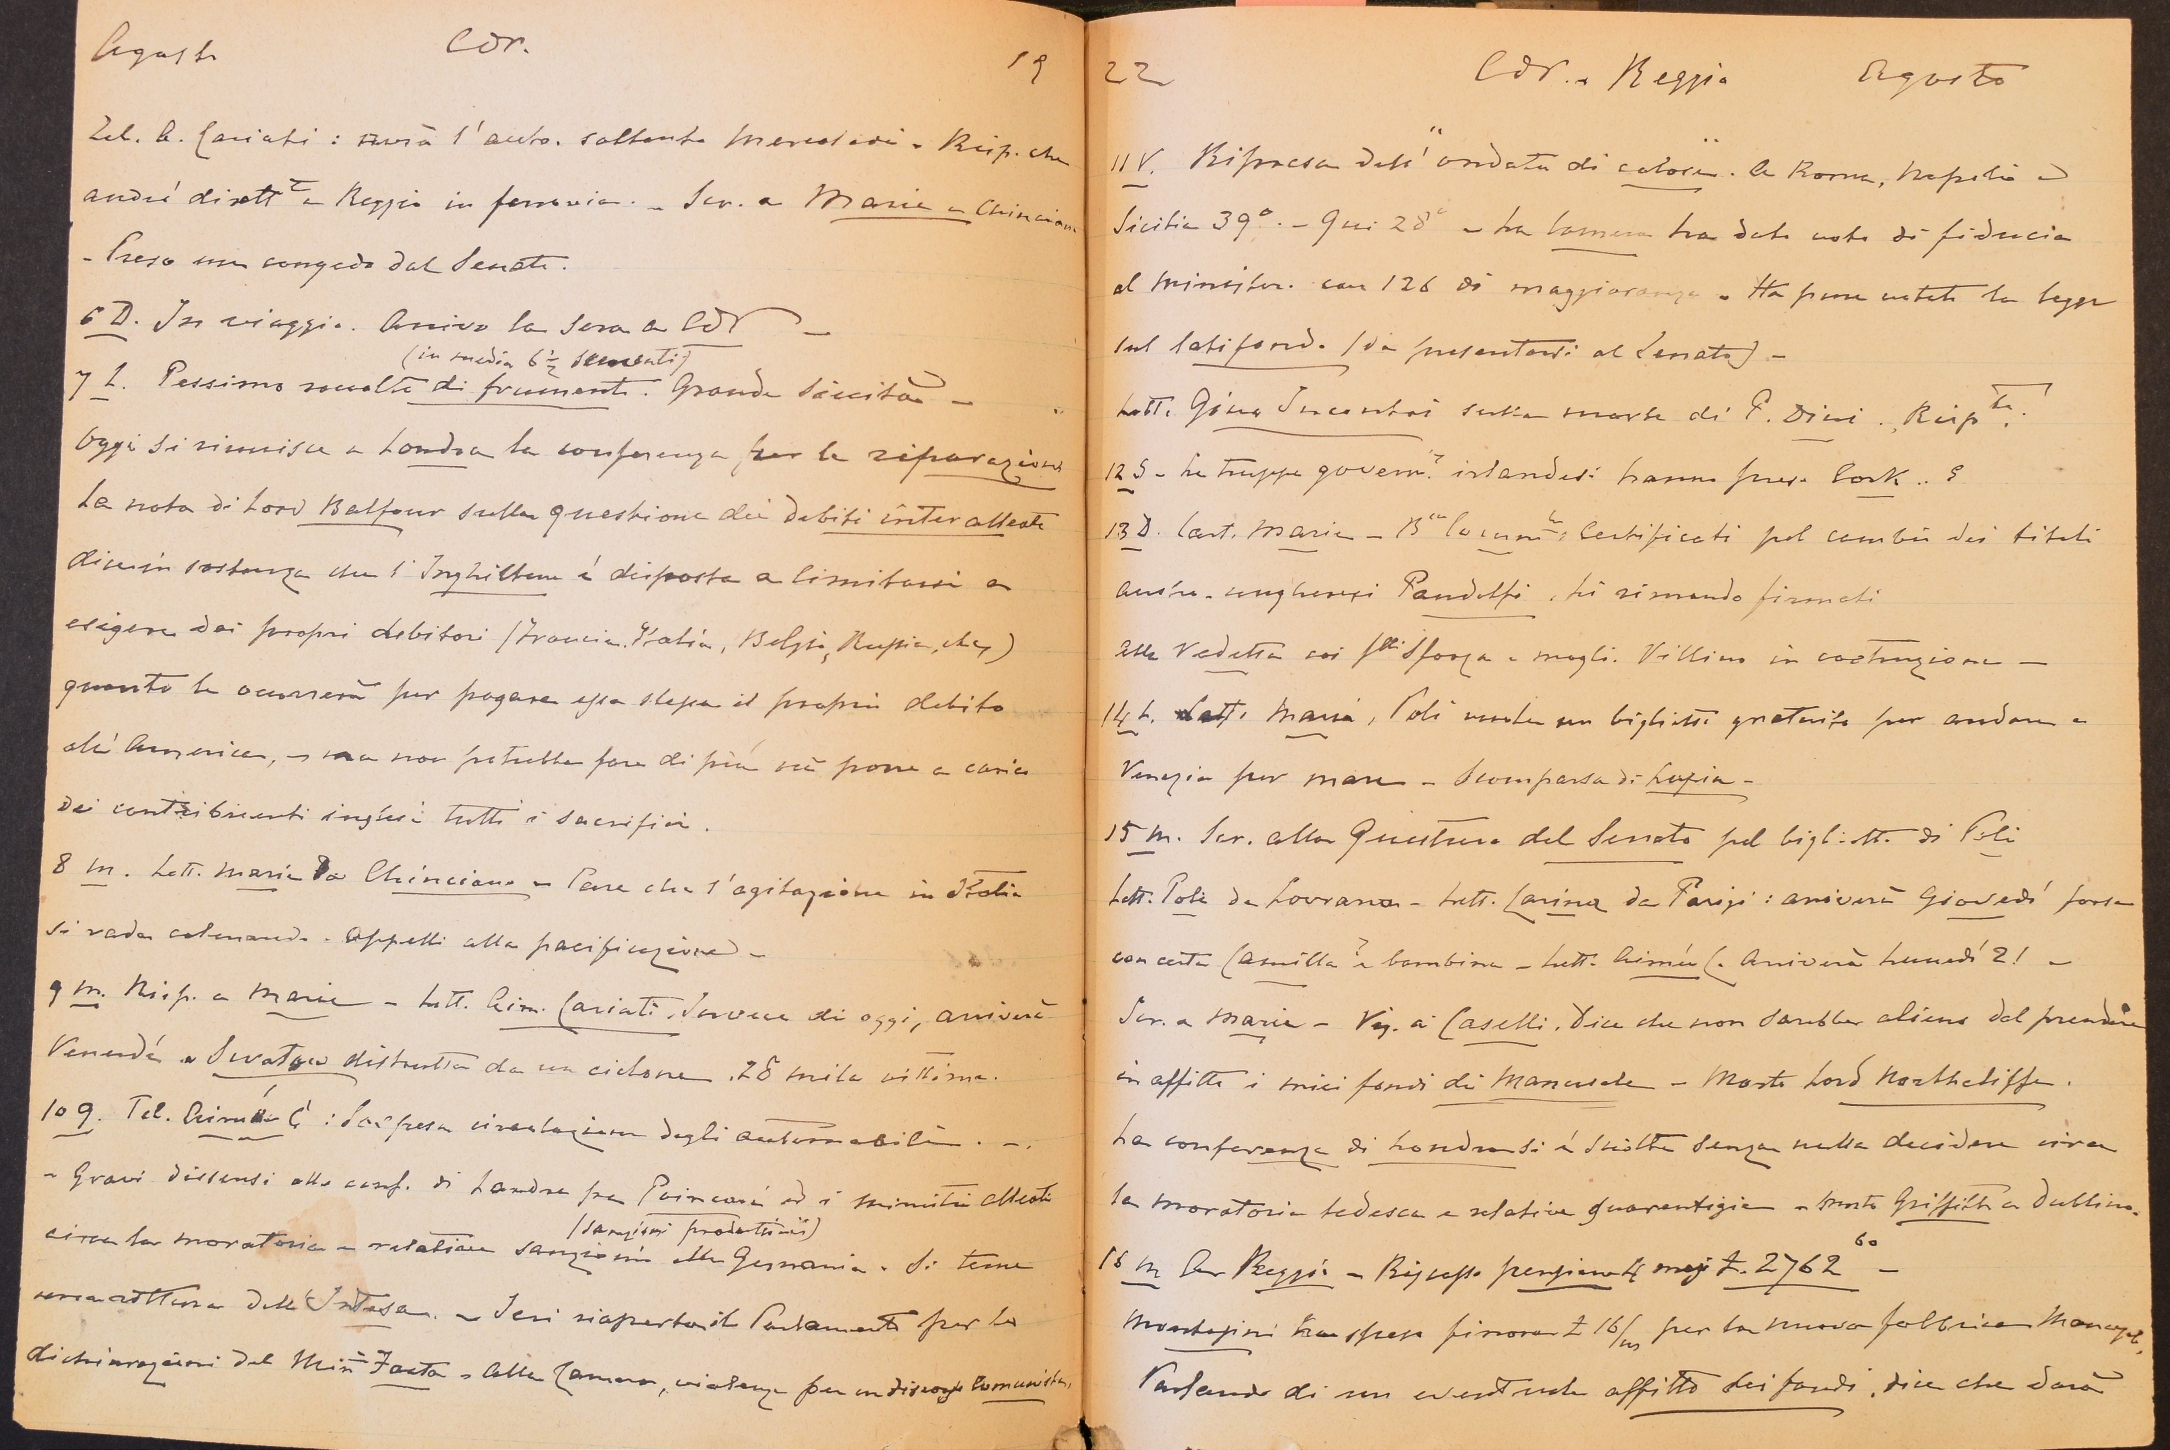 Agosto CDR. 19
Tel. A. Cariati: avrà l'auto. soltanto mercoledì - Risp. che
andrò dirett.te a Reggio in ferrovia. - Scr. a Maria a Chinciano
- Preso un congedo dal Senato.
6 D. In viaggio. Arrivo la sera a CDR -
(in media 6 1/2 sementi)
7 L. Pessimo raccolto di frumento. Grande siccità -
Oggi si riunisce a Londra la conferenza per le riparazioni
La nota di Lord Balfour sulla questione dei debiti interalleati
dice in sostanza che l'Inghilterra è disposta a limitarsi a
esigere dai propri debitori (Francia, Italia, Belgio, Russia, etc.)
quanto le occorrerà per pagare essa stessa il proprio debito
all'America, - ma non potrebbe fare di più nè porre a carico
dei contribuenti inglesi tutti i sacrifici.
8 M. Lett. Maria da Chinciano - Pare che l'agitazione in Italia
si vada calmando. Appelli alla pacificazione -
9 M. Risp. a Maria - Lett. Aim. Cariati. Invece di oggi, arriverà
Venerdì - Swatow distrutta da un ciclone. 28 mila vittime.
10 G. Tel. Aimée C: Sospesa circolazione degli automobili. -.
- Gravi dissensi alla conf. di Londra fra Poincaré ed i ministri alleati
(sanzioni produttive)
circa la moratoria e relative sanzioni alla Germania. Si teme
una rottura dell'Intesa. - Ieri riaperto il Parlamento per le
dichiarazioni del Min. Facta - Alla Camera, violenze per un discorso comunista.
22 CDR. - Reggio Agosto
11 V. Ripresa dell'"ondata di calore". A Roma, Napoli e
Sicilia 39°. - Qui 28° - La Camera ha dato voto di fiducia
al minister. con 126 di maggioranza. Ha pure votato la legge
sul latifondo (da presentarsi al Senato) -
Lett. Gino Incontri sulla morte di P. Dini. Risp.ta.
12 S - Le truppe govern. irlandesi hanno preso Cork.
13 D. Cart. Maria - B.ca Comm.le Certificati pel cambio dei titoli
austro-ungheresi Pandolfi. Li rimando firmati
Alla Vedetta coi f.lli Sforza e mogli. Villino in costruzione -
14 L. Lett. Maria, Poli vuole un biglietto gratuito per andare a
Venezia per mare - Scomparsa di Lupin -
15 M. Scr. alla Questura del Senato pel biglietto di Poli
Lett. Poli da Lovrana - Lett. Carina da Parigi: arriverà Giovedì forse
con certa Camilla? e bambina - Lett. Aimée C. Arriverà Lunedì 21 -
Scr. a Maria - Vis. ai Caselli. Dice che non sarebbe alieno dal prendere
in affitto i miei fondi di Mancasale - Morto Lord Northcliffe.
La conferenza di Londra si è sciolta senza nulla decidere circa
la moratoria tedesca e relative guarentigie - Morto Griffith a Dublino.
16 M A Reggio - Riscosso 2762 60 -
Montagini ha speso finora £ 16/m per la nuova fabbrica Mancasale.
Parlando di un eventuale affitto dei fondi, dice che darà